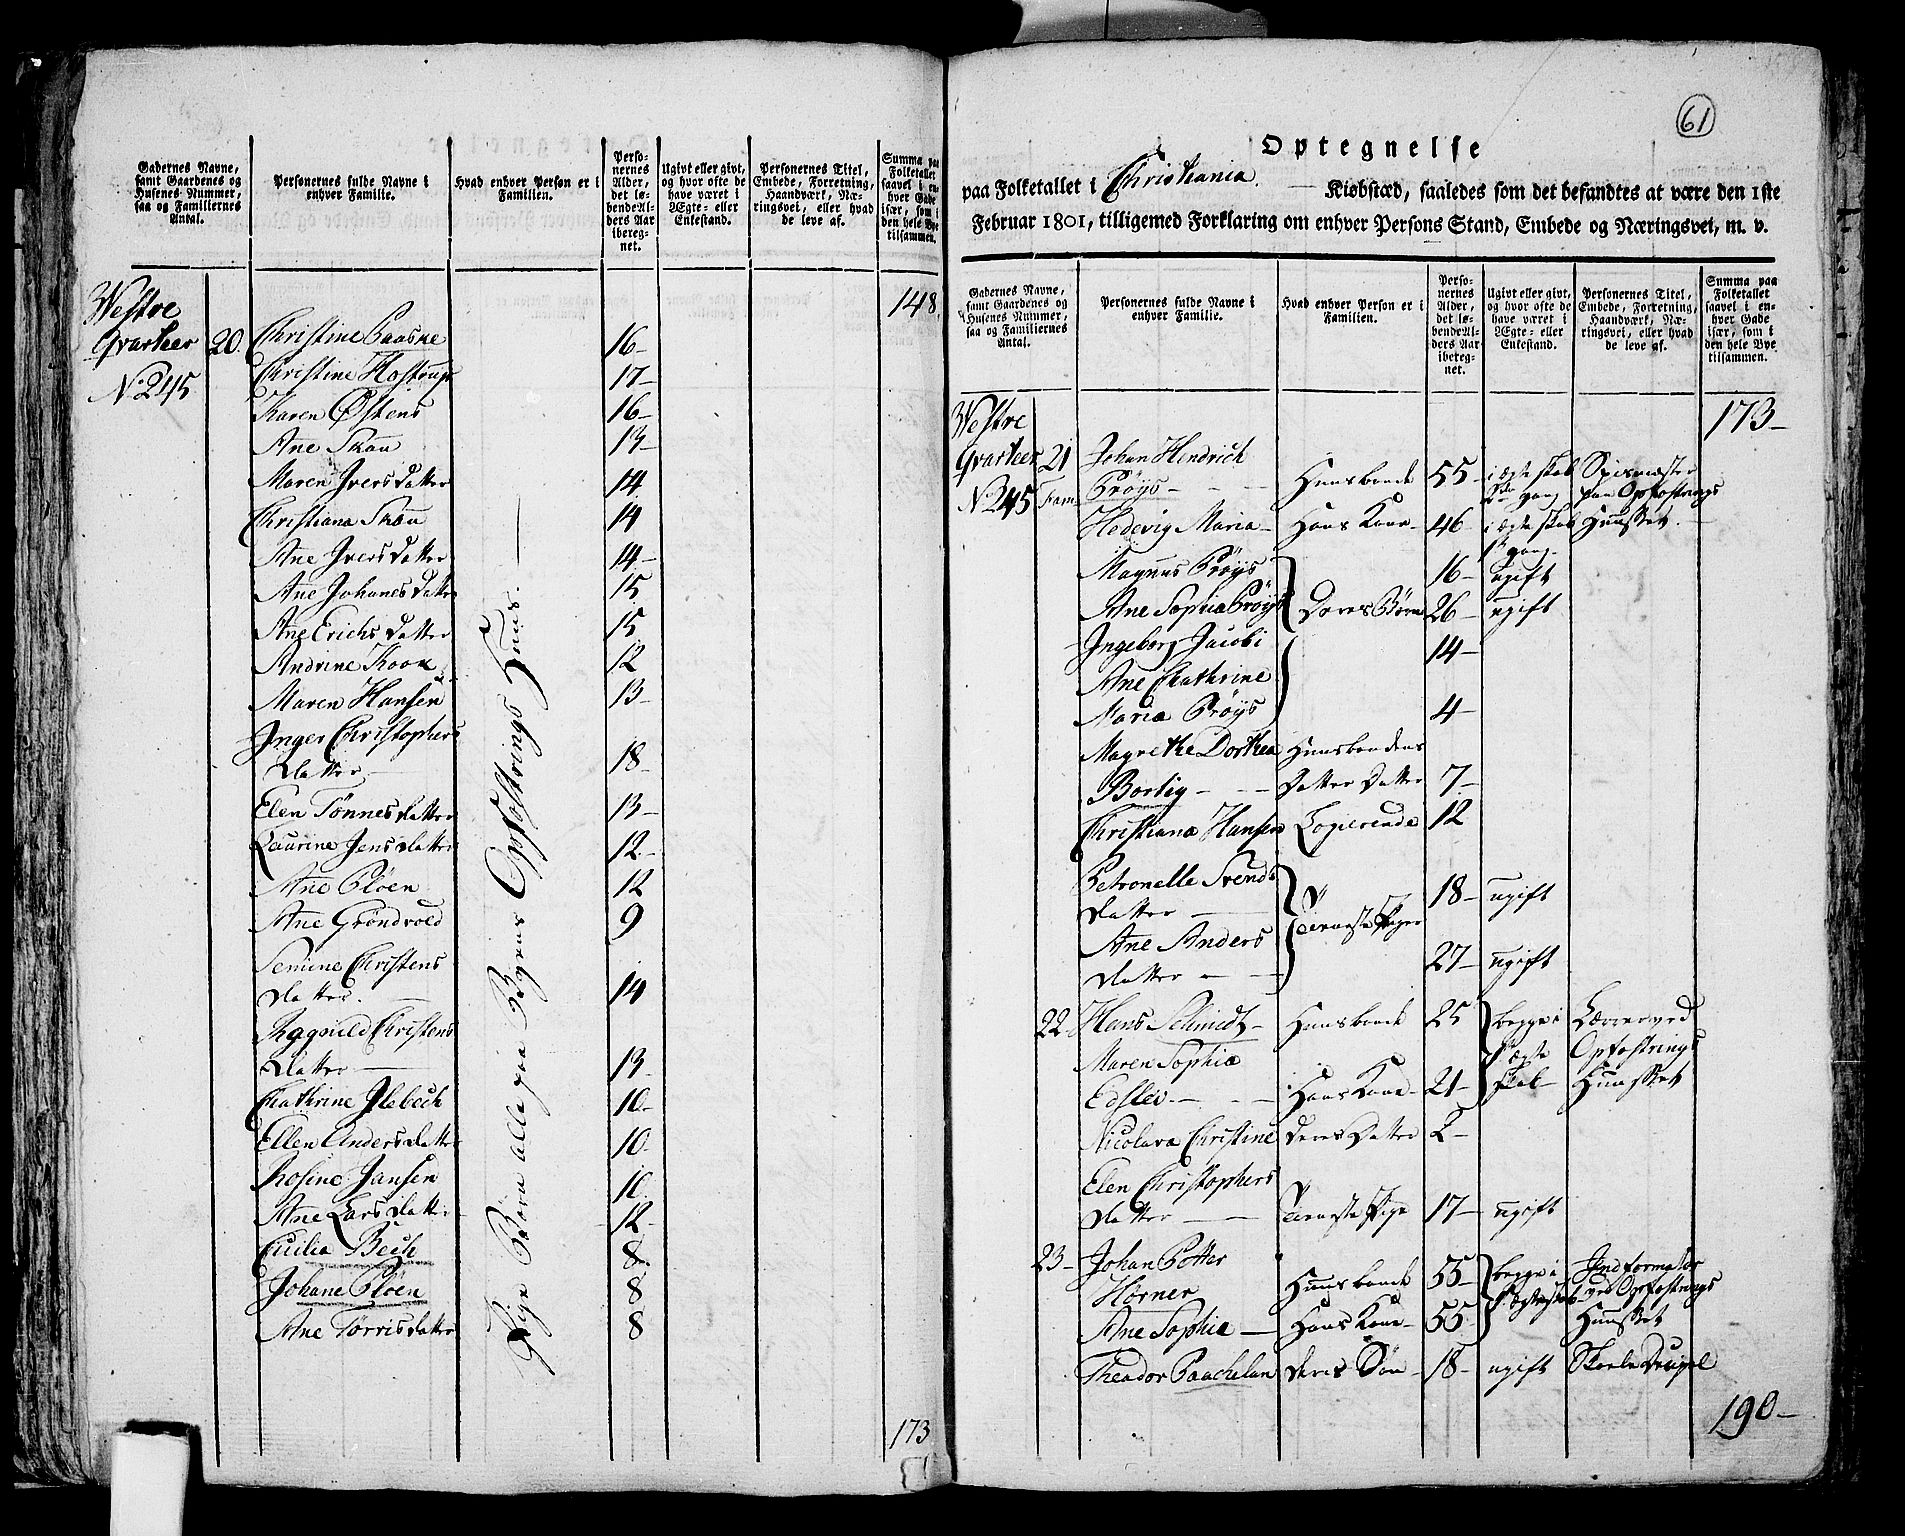 Gadernes Navne, samt Gaardenes og Husenes Nummer, saa og Familiernes Antal.
Personernes fulde Navne i enhver Familie.
Hvad enhver Person er i Familien.
Personernes Alder, det løbende Alders Aar iberegnet.
Ugivt eller givt, og hvor ofte de have været i Ægte- eller Enkestand.
Personernes Titel, Embede, Forretning, Haandværk, Næringsvei, eller hvad de leve af.
Summa paa Folketallet saavel i enhver Gade især, som i den hele Bye tilsammen.
148
Westre
Qvarteer 20. Christine Baasne 16-
No 245 Christine Hostrup 17-
Karen Østens 16-
Ane Skou 13-
Maren Ivers datter 14
Christiana Skou 14
Ane Ivers datter 14-
Ane Johanes datter 15
Ane Erichs datter 15
Andrine Koox 12
Maren Hansen 13-
Inger Christophers
datter 18-
Elen Tønnes datter 13-
Laurine Jens datter 12-
Ane Pløen 12
Ane Grøndvold 9
Semine Christens
datter. 14
Ragnild Christens
datter 13-
Chathrine Ilebech 10-
Ellen Anders datter 10-
Rosine Jansen 10
Ane Lars datter 12-
Cicilia Bech 8
Johane Pløen 8
Ane Tørris datter 8
Pige Børn alle paa Byens Opfostrings Huus.
173
61
Optegnelse
paa Folketallet i Christiania. Kiøbstæd, saaledes som det befandtes at være den 1ste
Februar 1801, tilligemed Forklaring om enhver Persons Stand, Embede og Næringsvei, m. v.
Gadernes Navne, samt Gaardenes og Husenes Nummer, saa og Familiernes Antal.
Personernes fulde Navne i enhver Familie.
Hvad enhver Person er i Familien.
Personernes Alder, det løbende Alders Aar iberegnet.
Ugivt eller givt, og hvor ofte de have været i Ægte- eller Enkestand.
Personernes Titel, Embede, Forretning, Haandværk, Næringsvei, eller hvad de leve af.
Summa paa Folketallet saavel i enhver Gade især, som i den hele Bye tilsammen.
173-
Westre
Qvarteer 21 Johan Hendrich
No 245 Fam: Prøys - Huusbonde 55 i ægteskab 2den gang Spismester paa Opfostrings
Hedevig Maria - Hans Kone - 46- i ægteskab 1te gang Huusset.
Magnus Prøys 16- ugift
Ane Sophia Prøys Deres Børn 26- ugift
Ingeborg Jacobi 14-
Ane Chathrine
Maria Prøys 4-
Magrethe Dorthea Huusbondens
Bortig - Datter Datter 7-
Christiana Hansen Logerende 12
Petronelle Svends
datter 18- ugift
Tieneste Piger
Ane Anders
datter - 27- ugift
22- Hans Schmidt - Huusbonde 25 begge i Lærer ved
Maren Sophia 1te ægte Opfostrings
Edslev - Hans Kone - 21- skab Huusset
Nicolava Christine deres Datter 2-
Elen Christophers
datter Tieneste Pige 17- ugift
23- Johan Potter
Hörner Huusbonde 55- begge i 1te ægteskab Informator ved Opfostrings
Ane Sophia - Hans Kone - 55 Huusset
Theodor Paachelan deres Søn 18- ugift Skole Discipel
190-